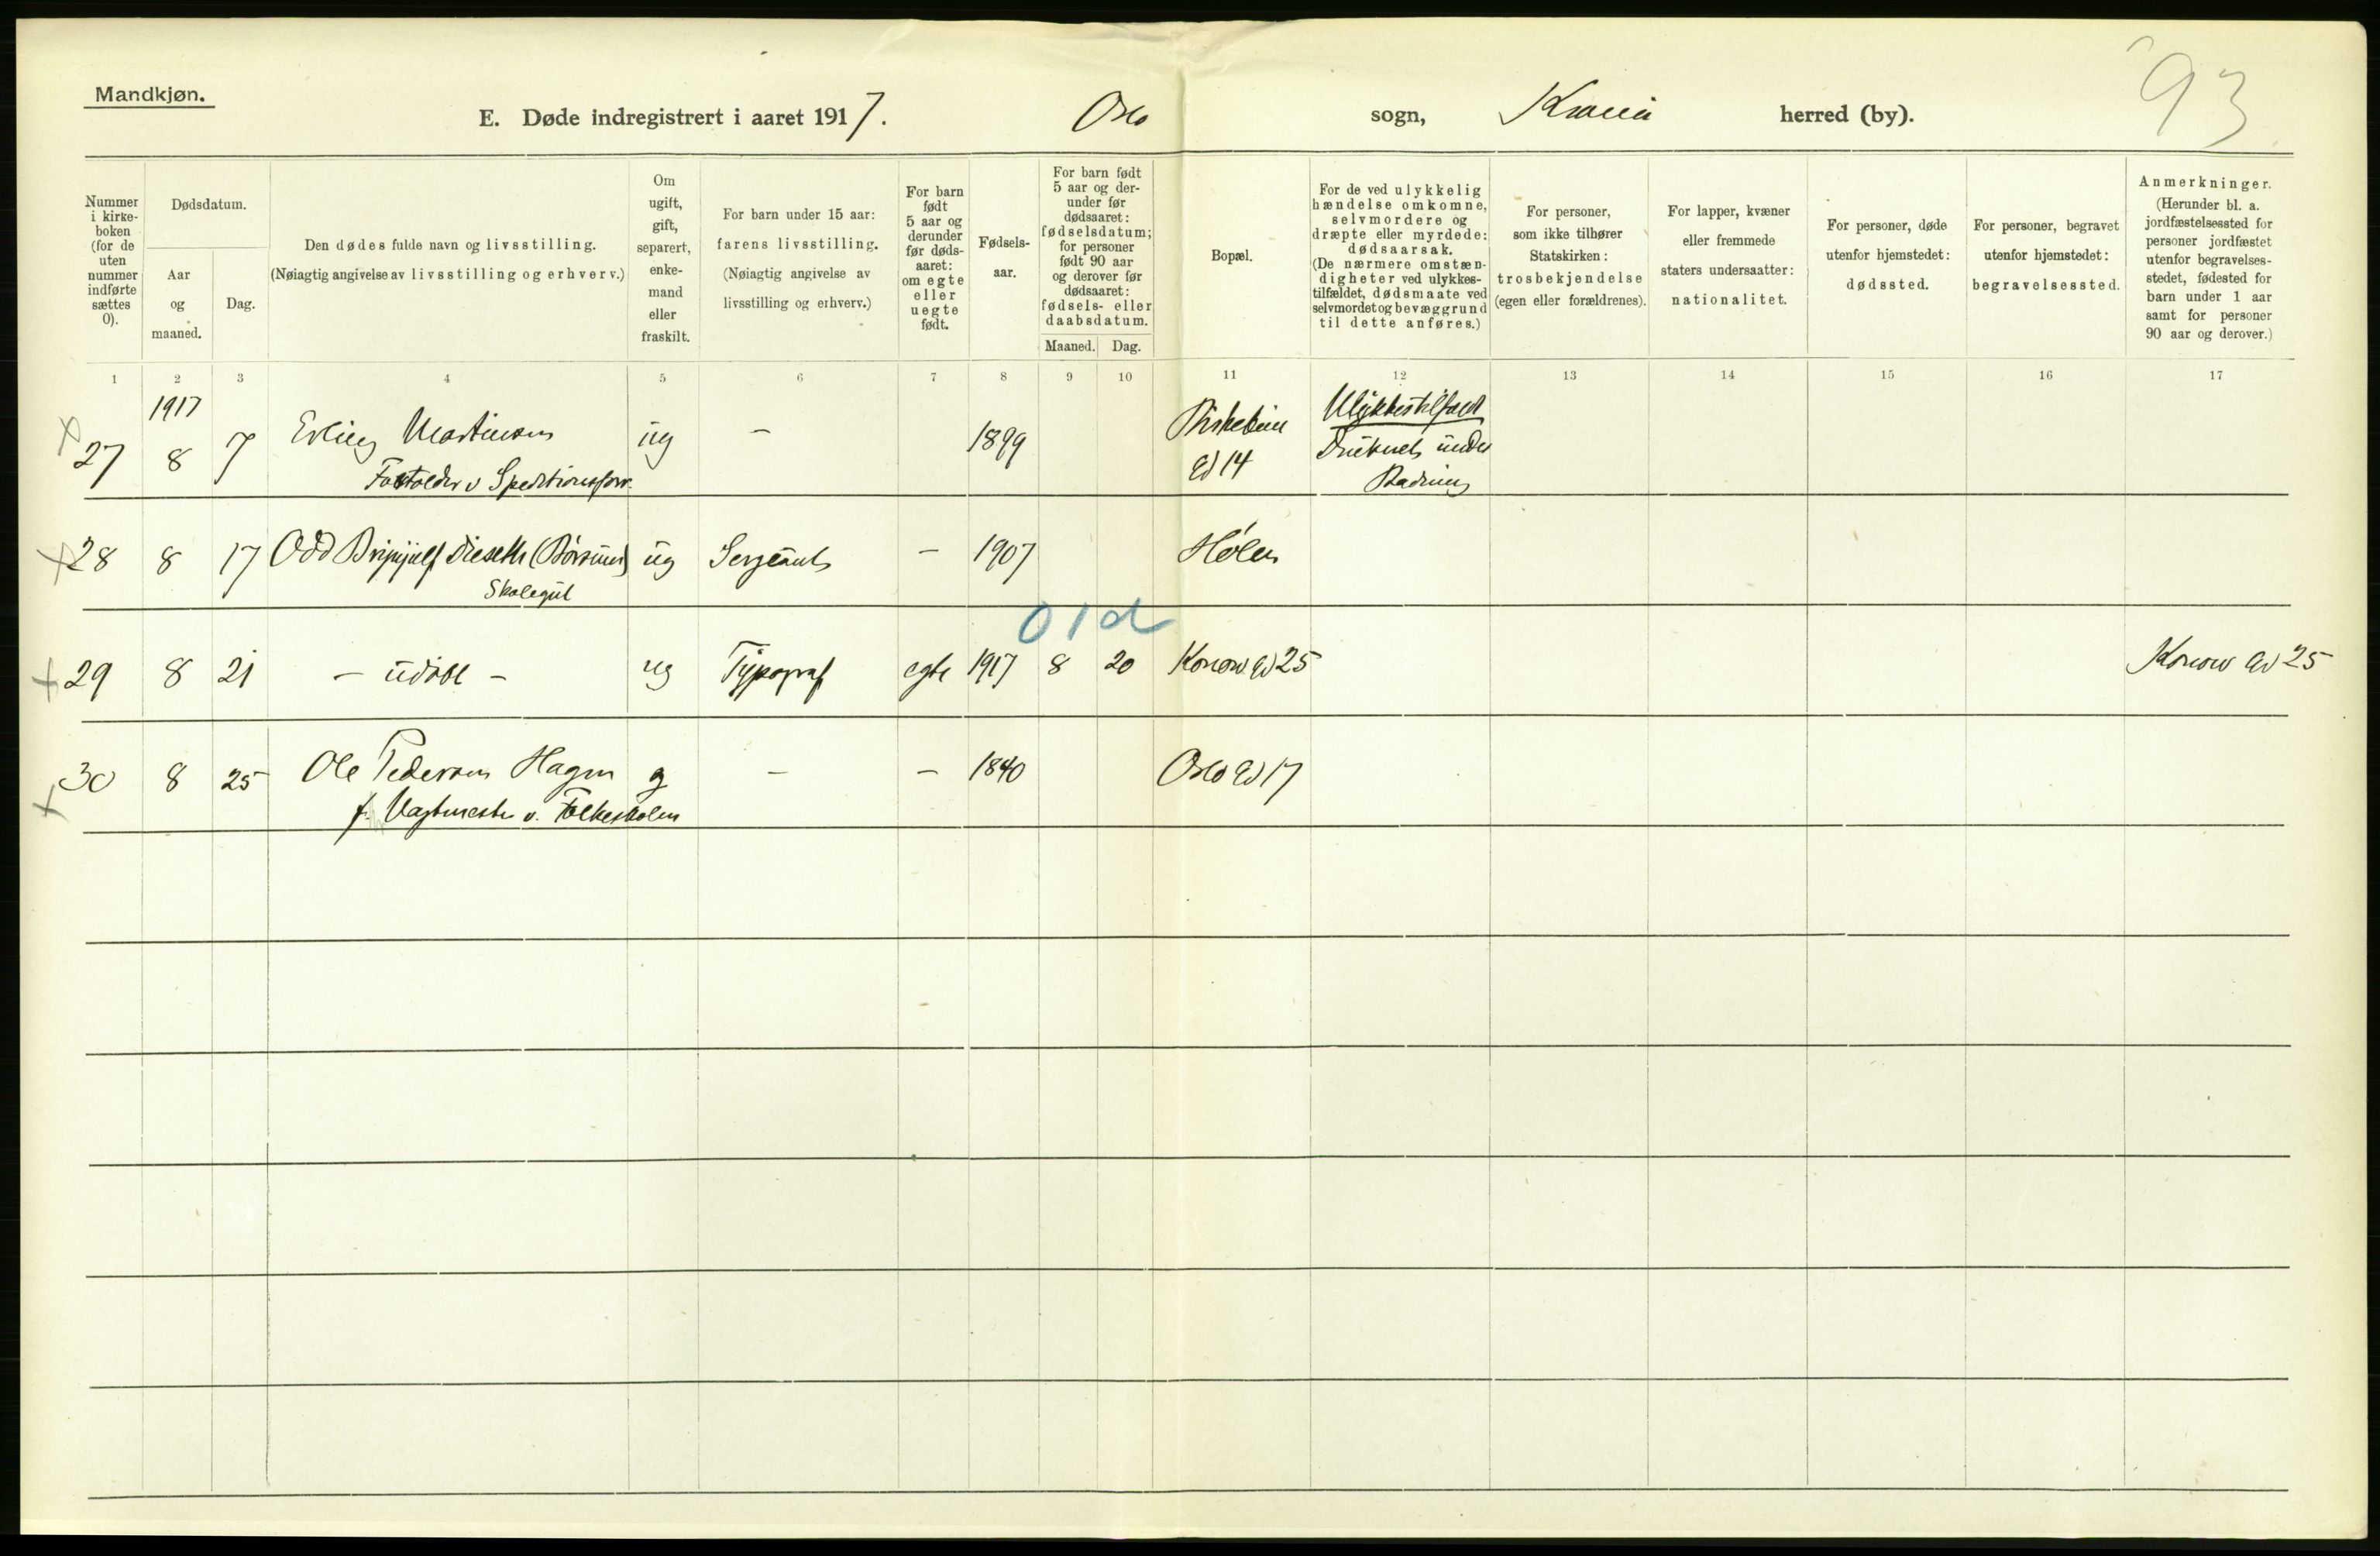 Mandkjøn.
93
E. Døde indregistrert i aaret 1917. Oslo sogn, Krania herred (by).
Nummer i kirkeboken (for de uten nummer indførte sættes 0).
Dødsdatum.
Aar og maaned.
Dag.
Den dødes fulde navn og livsstilling.
(Nøiagtig angivelse av livsstilling og erhverv.)
Om ugift, gift, separert, enkemand eller fraskilt.
For barn under 15 aar:
farens livsstilling.
(Nøiagtig angivelse av
livsstilling og erhverv.)
For barn født 5 aar og derunder før dødsaaret: om egte eller uegte født.
Fødselsaar.
For barn født 5 aar og derunder før dødsaaret: fødselsdatum; for personer født 90 aar og derover før dødsaaret: fødsels- eller daabsdatum.
Maaned. Dag.
Bopæl.
For de ved ulykkelig hændelse omkomne, selvmordere og dræpte eller myrdede: dødsaarsak.
(De nærmere omstændigheter ved ulykkestilfældet, dødsmaate ved selvmordet og bevæggrund til dette anføres.)
For personer, som ikke tilhører Statskirken: trosbekjendelse (egen eller forældrenes).
For lapper, kvæner eller fremmede staters undersaatter: nationalitet.
For personer, døde utenfor hjemstedet: dødssted.
For personer, begravet utenfor hjemstedet: begravelsessted.
Anmerkninger.
(Herunder bl. a. jordfæstelsessted for personer jordfæstet utenfor begravelsesstedet, fødested for barn under 1 aar samt for personer 90 aar og derover.)
1 2 3 4 5 6 7 8 9 10 11 12 13 14 15 16 17
1917
27 8 7 Erling Martinsen ug – 1899 Biskebein Gd 14 Ulykkestilfæld
Druknet under
Badning
v Speditionsforr.
28 8 17 Odd Brynjulf Dieseth (Børsum) ug Sergeants – 1907 Hølen
Skolegut
01d
29 8 21 – udøbt – ug Typograf egte 1917 8 20 Konow Gd 25 Konow Gd 25
30 8 25 Ole Pedersen Hagen g – – 1840 Oslo Gd 17
f. Vagtmester v. Folkeskolen